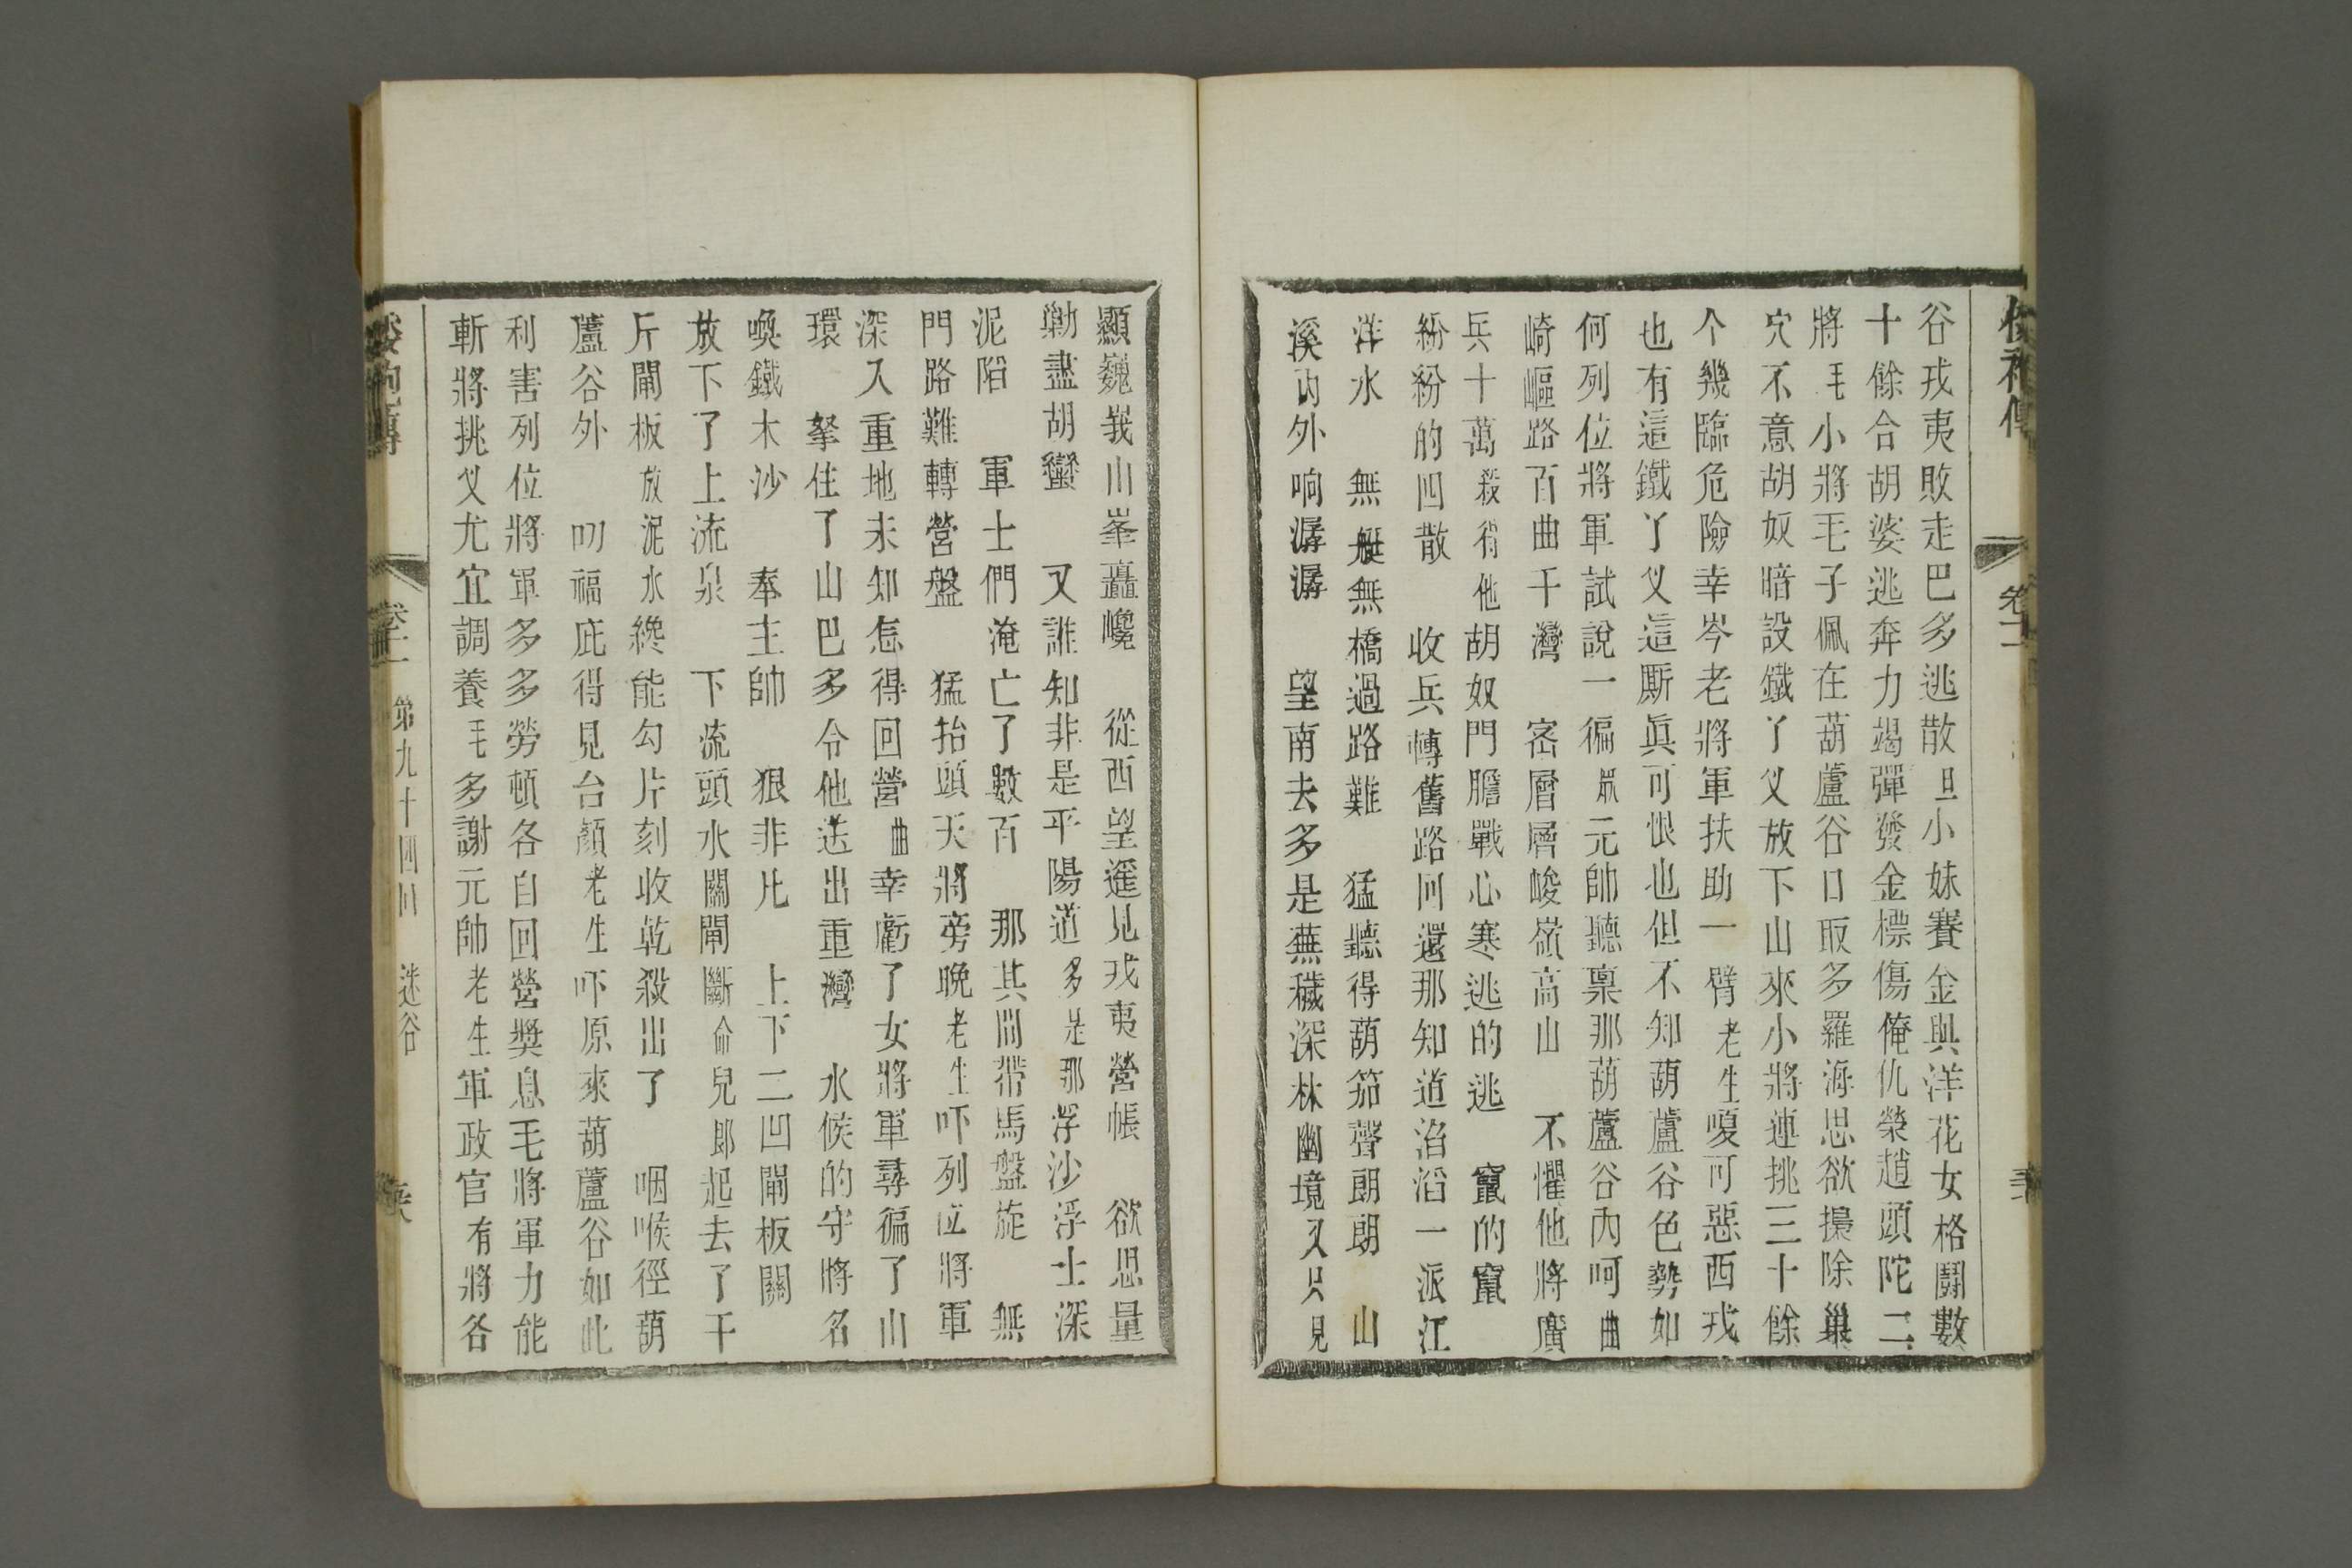 谷戎夷敗走巴多逃散旦小妹賽金與洋花女格鬪數
十餘合胡婆逃奔力竭彈發金標傷俺仇榮趙頭陀二
將毛小將毛子佩在葫蘆谷口取多羅海思欲掃除巢
穴不意胡奴暗設鐵丫义放下山來小將連挑三十餘
个幾臨危險幸岑老將軍扶助一臂老生嗄可惡西戎
也有這鐵丫义這厮眞可恨也但不知葫蘆谷色勢如
何列位將軍試說一徧眾元帥聽稟那葫蘆谷內呵曲
崎嶇路百曲千灣　密層層峻嶺高山　不懼他將廣
兵十萬殺得他胡奴門膽戰心寒逃的逃　竄的竄
紛紛的四散　收兵轉舊路回還那知道滔滔一派江
洋水　無艇無橋過路難　猛聽得葫笳聲朗朗　山
溪內外响潺潺　望南去多是蕪穢深林幽境又只見
顯巍峩川峯矗巉　從西望遥見戎夷營帳　欲思量
勦盡胡蠻　又誰知非是平陽道多是那浮沙浮士深
泥陷　軍士們淹亡了數百　那其間帶馬盤旋　無
門路難轉營盤　猛抬頭天將旁晚老生吓列位將軍
深入重地未知怎得回營曲幸虧了女將軍尋徧了山
環　拏住了山巴多令他送出重灣　水候的守將名
喚鐵木沙　奉主帥　狠非比　上下二凹閘板關
放下了上流泉　下流頭水關閘斷命兒郎起去了千
斤閘板放泥水纔能勾片刻收乾殺出了　咽喉徑葫
蘆谷外　叨福庇得見台顏老生吓原來葫蘆谷如此
利害列位將軍多多勞頓各自回營獎息毛將軍力能
斬將挑义尤宜調養毛多謝元帥老生軍政官有將各
卷二　第九十四回　迷谷